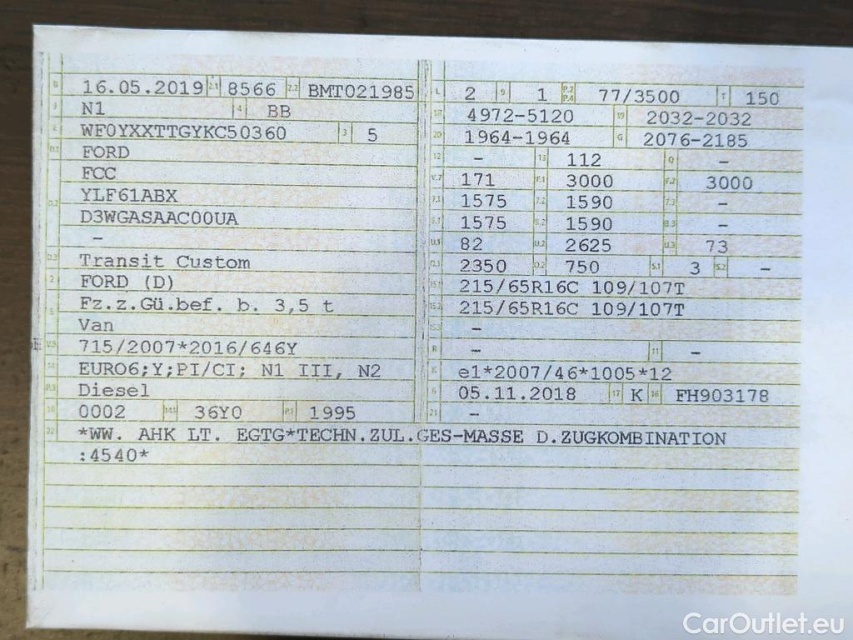 B 16.05.2019 2.1 8566 2.2 BMT021985
J N1 4 BB
E WF0YXXTTGYKC50360 3 5
D.1 FORD
FCC
D.2 YLF61ABX
D3WGASAAC00UA
–
D.3 Transit Custom
2 FORD (D)
5 Fz.z.Gü.bef. b. 3,5 t
Van
V.9 715/2007*2016/646Y
14 EURO6;Y;PI/CI; N1 III, N2
P.3 Diesel
10 0002 14.1 36Y0 P.1 1995
L 2 9 1 P.2 P.4 77/3500 T 150
18 4972-5120 19 2032-2032
20 1964-1964 G 2076-2185
12 – 13 112 Q –
V.7 171 F.1 3000 F.2 3000
7.1 1575 7.2 1590 7.3 –
8.1 1575 8.2 1590 8.3 –
U.1 82 U.2 2625 U.3 73
O.1 2350 O.2 750 S.1 3 S.2 –
15.1 215/65R16C 109/107T
15.2 215/65R16C 109/107T
15.3 –
R – 11 –
K e1*2007/46*1005*12
6 05.11.2018 17 K 16 FH903178
21 –
22 *WW. AHK LT. EGTG*TECHN.ZUL.GES-MASSE D.ZUGKOMBINATION
:4540*
CarOutlet.eu